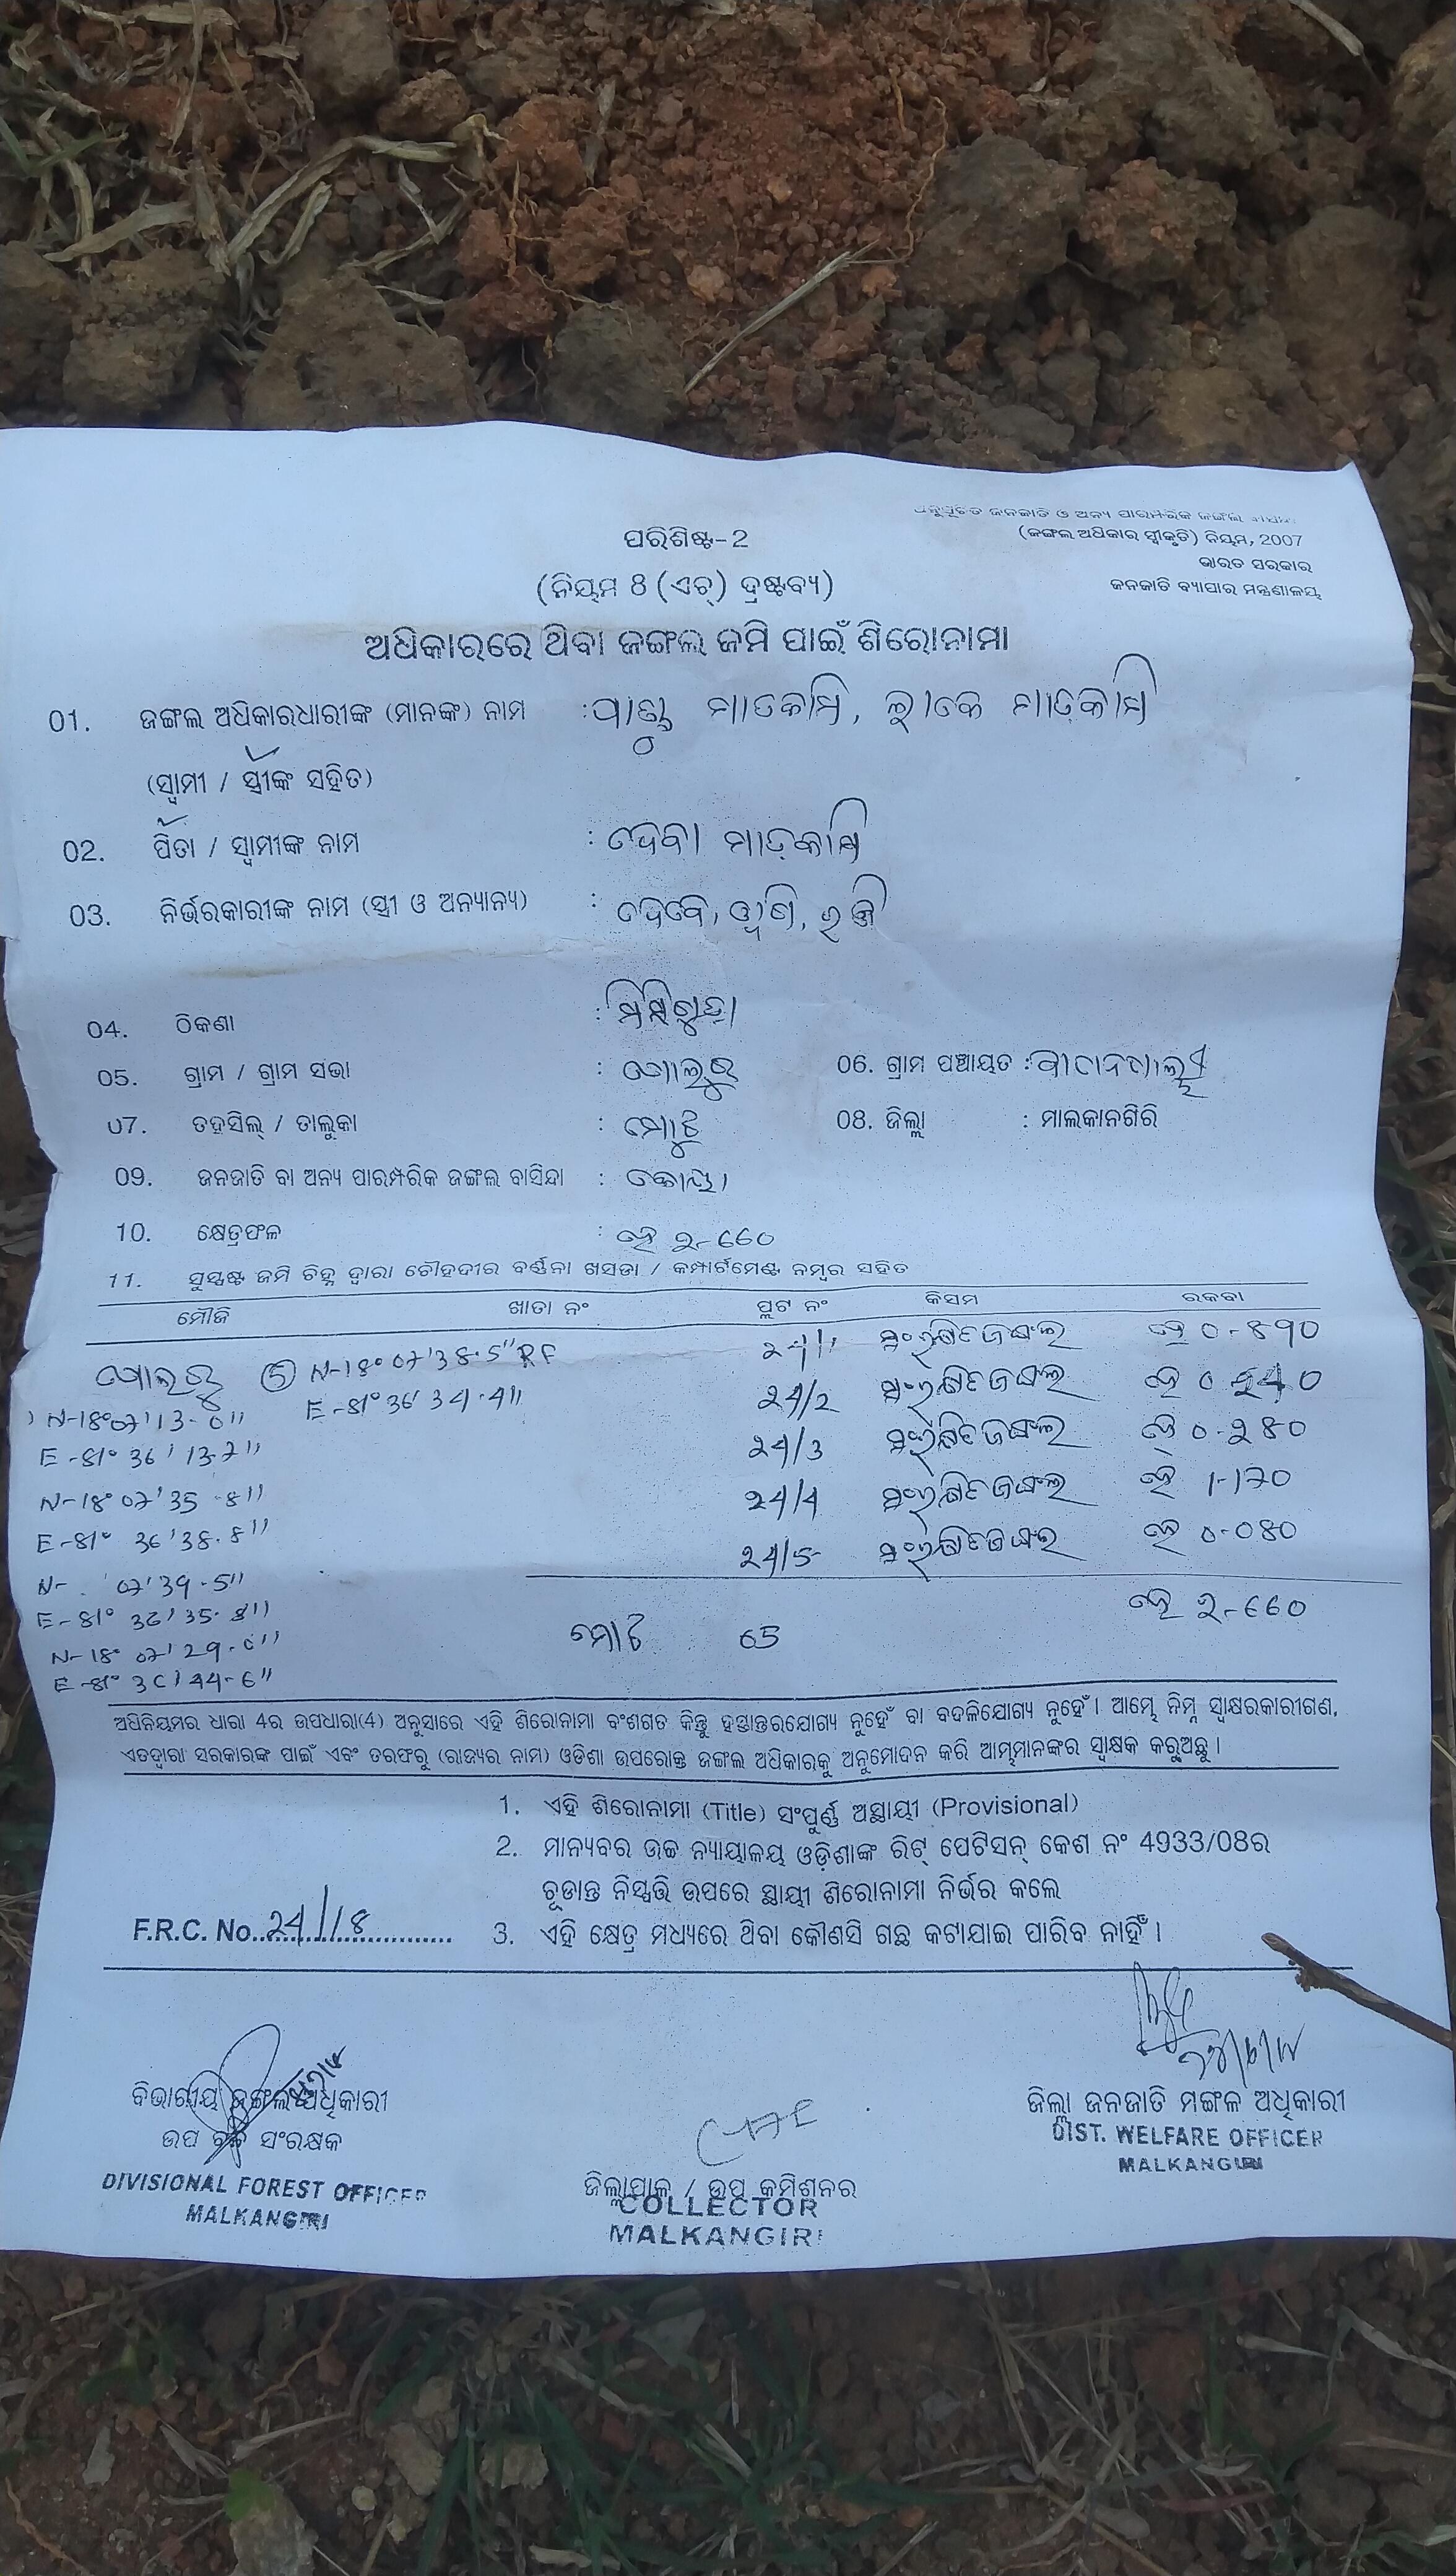 ଜନଜାତି ଓ ଅନ୍ୟ ପାରମ୍ପରିକ ଜଙ୍ଗଲ
ପରିଶିଷ୍ଟ-2
(ଜଙ୍ଗଲ ଅଧିକାର ସ୍ୱୀକୃତି) ନିୟମ, 2007
ଭାରତ ସରକାର
(ନିୟମ 8 (ଏଚ୍) ଦ୍ରଷ୍ଟବ୍ୟ)
ଜନଜାତି ବ୍ୟାପାର ମନ୍ତ୍ରଣାଳୟ
ଅଧିକାରରେ ଥିବା ଜଙ୍ଗଲ ଜମି ପାଇଁ ଶିରୋନାମା
01. ଜଙ୍ଗଲ ଅଧିକାରଧାରୀଙ୍କ (ମାନଙ୍କ) ନାମ : ମାଡକାମି, ମାଡକାମି
(ସ୍ୱାମୀ / ସ୍ତ୍ରୀଙ୍କ ସହିତ)
02. ପିତା / ସ୍ୱାମୀଙ୍କ ନାମ : ଦେବା ମାଡ଼କାମି
03. ନିର୍ଭରକାରୀଙ୍କ ନାମ (ସ୍ତ୍ରୀ ଓ ଅନ୍ୟାନ୍ୟ) : ଦେବେ,
04. ଠିକଣା :
05. ଗ୍ରାମ / ଗ୍ରାମ ସଭା : 06. ଗ୍ରାମ ପଞ୍ଚାୟତ :
07. ତହସିଲ୍ / ତାଲୁକା : ମୋଟୁ 08. ଜିଲ୍ଲା : ମାଲକାନଗିରି
09. ଜନଜାତି ବା ଅନ୍ୟ ପାରମ୍ପରିକ ଜଙ୍ଗଲ ବାସିନ୍ଦା : କୋୟା
10. କ୍ଷେତ୍ରଫଳ : ହେ ୨-୬୬୦
11. ସୁସ୍ପଷ୍ଟ ଜମି ଚିହ୍ନ ଦ୍ୱାରା ଚୌହଦୀର ବର୍ଣ୍ଣନା ଖସଡା / କମ୍ପାର୍ଟମେଣ୍ଟ ନମ୍ବର ସହିତ
ମୌଜି ଖାତା ନଂ ପ୍ଲଟ ନଂ କିସମ ରକବା
⑤ N-18° 07' 38.5" RF 24/1 ସଂରକ୍ଷିତ ଜଙ୍ଗଲ ହେ 0-890
N-18° 07' 13-0" E-81° 36' 34-4" 24/2 ସଂରକ୍ଷିତ ଜଙ୍ଗଲ ହେ 0-240
E-81° 36' 13-2" 24/3 ସଂରକ୍ଷିତ ଜଙ୍ଗଲ ହେ 0-280
N-18° 07' 35-8" 24/4 ସଂରକ୍ଷିତ ଜଙ୍ଗଲ ହେ 1-170
E-81° 36' 38.8" 24/5 ସଂରକ୍ଷିତ ଜଙ୍ଗଲ ହେ 0-080
N- 07' 39-5"
E-81° 36' 35-8" ହେ ୨-୬୬୦
N-18° 07' 29- ମୋଟ 05
E-81° 36' 44-6"
ଅଧିନିୟମର ଧାରା 4ର ଉପଧାରା(4) ଅନୁସାରେ ଏହି ଶିରୋନାମା ବଂଶଗତ କିନ୍ତୁ ହସ୍ତାନ୍ତରଯୋଗ୍ୟ ନୁହେଁ ବା ବଦଳିଯୋଗ୍ୟ ନୁହେଁ । ଆମ୍ଭେ ନିମ୍ନ ସ୍ୱାକ୍ଷରକାରୀଗଣ,
ଏତଦ୍ୱାରା ସରକାରଙ୍କ ପାଇଁ ଏବଂ ତରଫରୁ (ରାଜ୍ୟର ନାମ) ଓଡିଶା ଉପରୋକ୍ତ ଜଙ୍ଗଲ ଅଧିକାରକୁ ଅନୁମୋଦନ କରି ଆମ୍ଭମାନଙ୍କର ସ୍ୱାକ୍ଷକ କରୁଅଛୁ ।
1. ଏହି ଶିରୋନାମା (Title) ସଂପୂର୍ଣ୍ଣ ଅସ୍ଥାୟୀ (Provisional)
2. ମାନ୍ୟବର ଉଚ୍ଚ ନ୍ୟାୟାଳୟ ଓଡ଼ିଶାଙ୍କ ରିଟ୍ ପେଟିସନ୍ କେଶ ନଂ 4933/08ର
ଚୂଡାନ୍ତ ନିସ୍ପତ୍ତି ଉପରେ ସ୍ଥାୟୀ ଶିରୋନାମା ନିର୍ଭର କଲେ
F.R.C. No. 24/18 3. ଏହି କ୍ଷେତ୍ର ମଧ୍ୟରେ ଥିବା କୌଣସି ଗଛ କଟାଯାଇ ପାରିବ ନାହିଁ ।
ବିଭାଗୀୟ ଜଙ୍ଗଲ ଅଧିକାରୀ
ଉପ ସଂରକ୍ଷକ
DIVISIONAL FOREST OFFICER
MALKANGIRI
ଜିଲ୍ଲାପାଳ / ଉପ କମିଶନର
COLLECTOR
MALKANGIRI
ଜିଲ୍ଲା ଜନଜାତି ମଙ୍ଗଳ ଅଧିକାରୀ
DIST. WELFARE OFFICER
MALKANGIRI